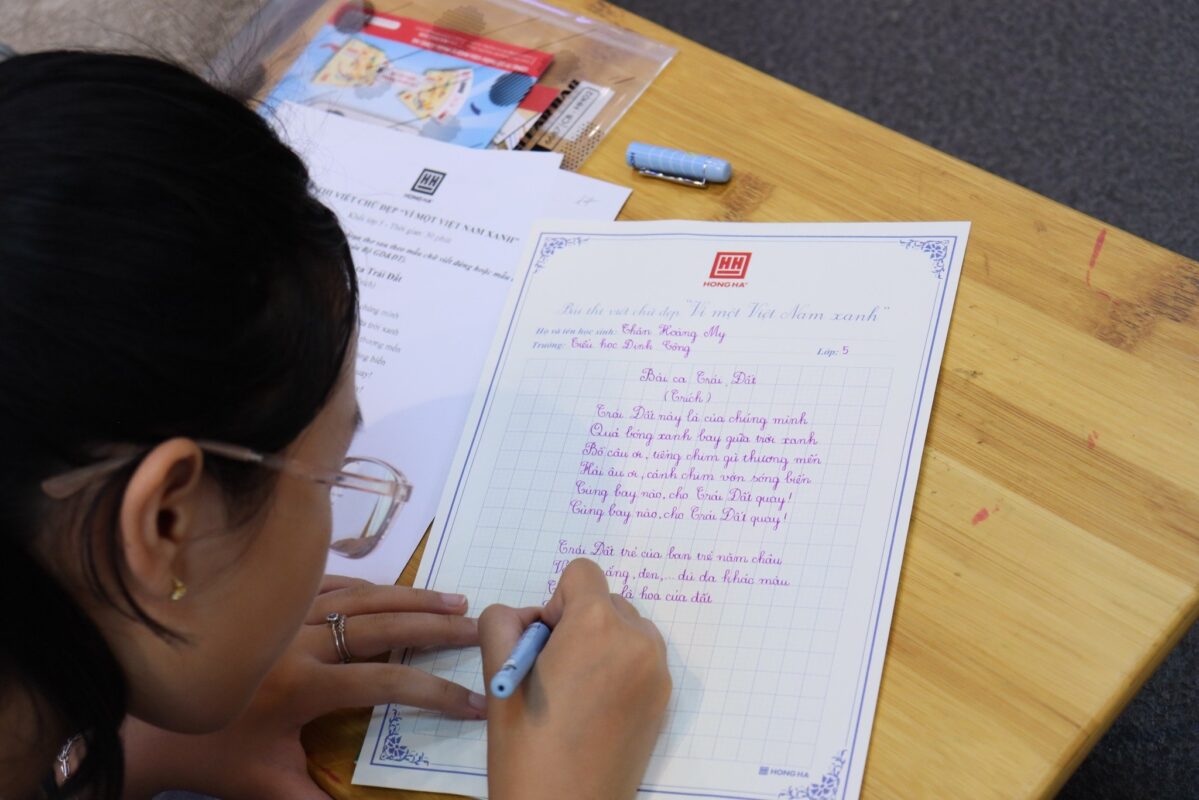 HH
HONG HA
THI VIẾT CHỮ ĐẸP "VÌ MỘT VIỆT NAM XANH"
Khối lớp 5 - Thời gian: 30 phút
ca Trái Đất
HH
HONG HA
Bài thi viết chữ đẹp "Vì một Việt Nam xanh"
Họ và tên học sinh: Thân Hoàng My
Trường: Tiểu học Định Công Lớp: 5
Bài ca Trái Đất
(Trích)
Trái Đất này là của chúng mình
Quả bóng xanh bay giữa trời xanh
Bồ câu ơi, tiếng chim gù thương mến
Hải âu ơi, cánh chim vờn sóng biển
Cùng bay nào, cho Trái Đất quay!
Cùng bay nào, cho Trái Đất quay!
Trái Đất trẻ của bạn trẻ năm châu
đen,... dù da khác màu
là hoa của đất
HONG HA